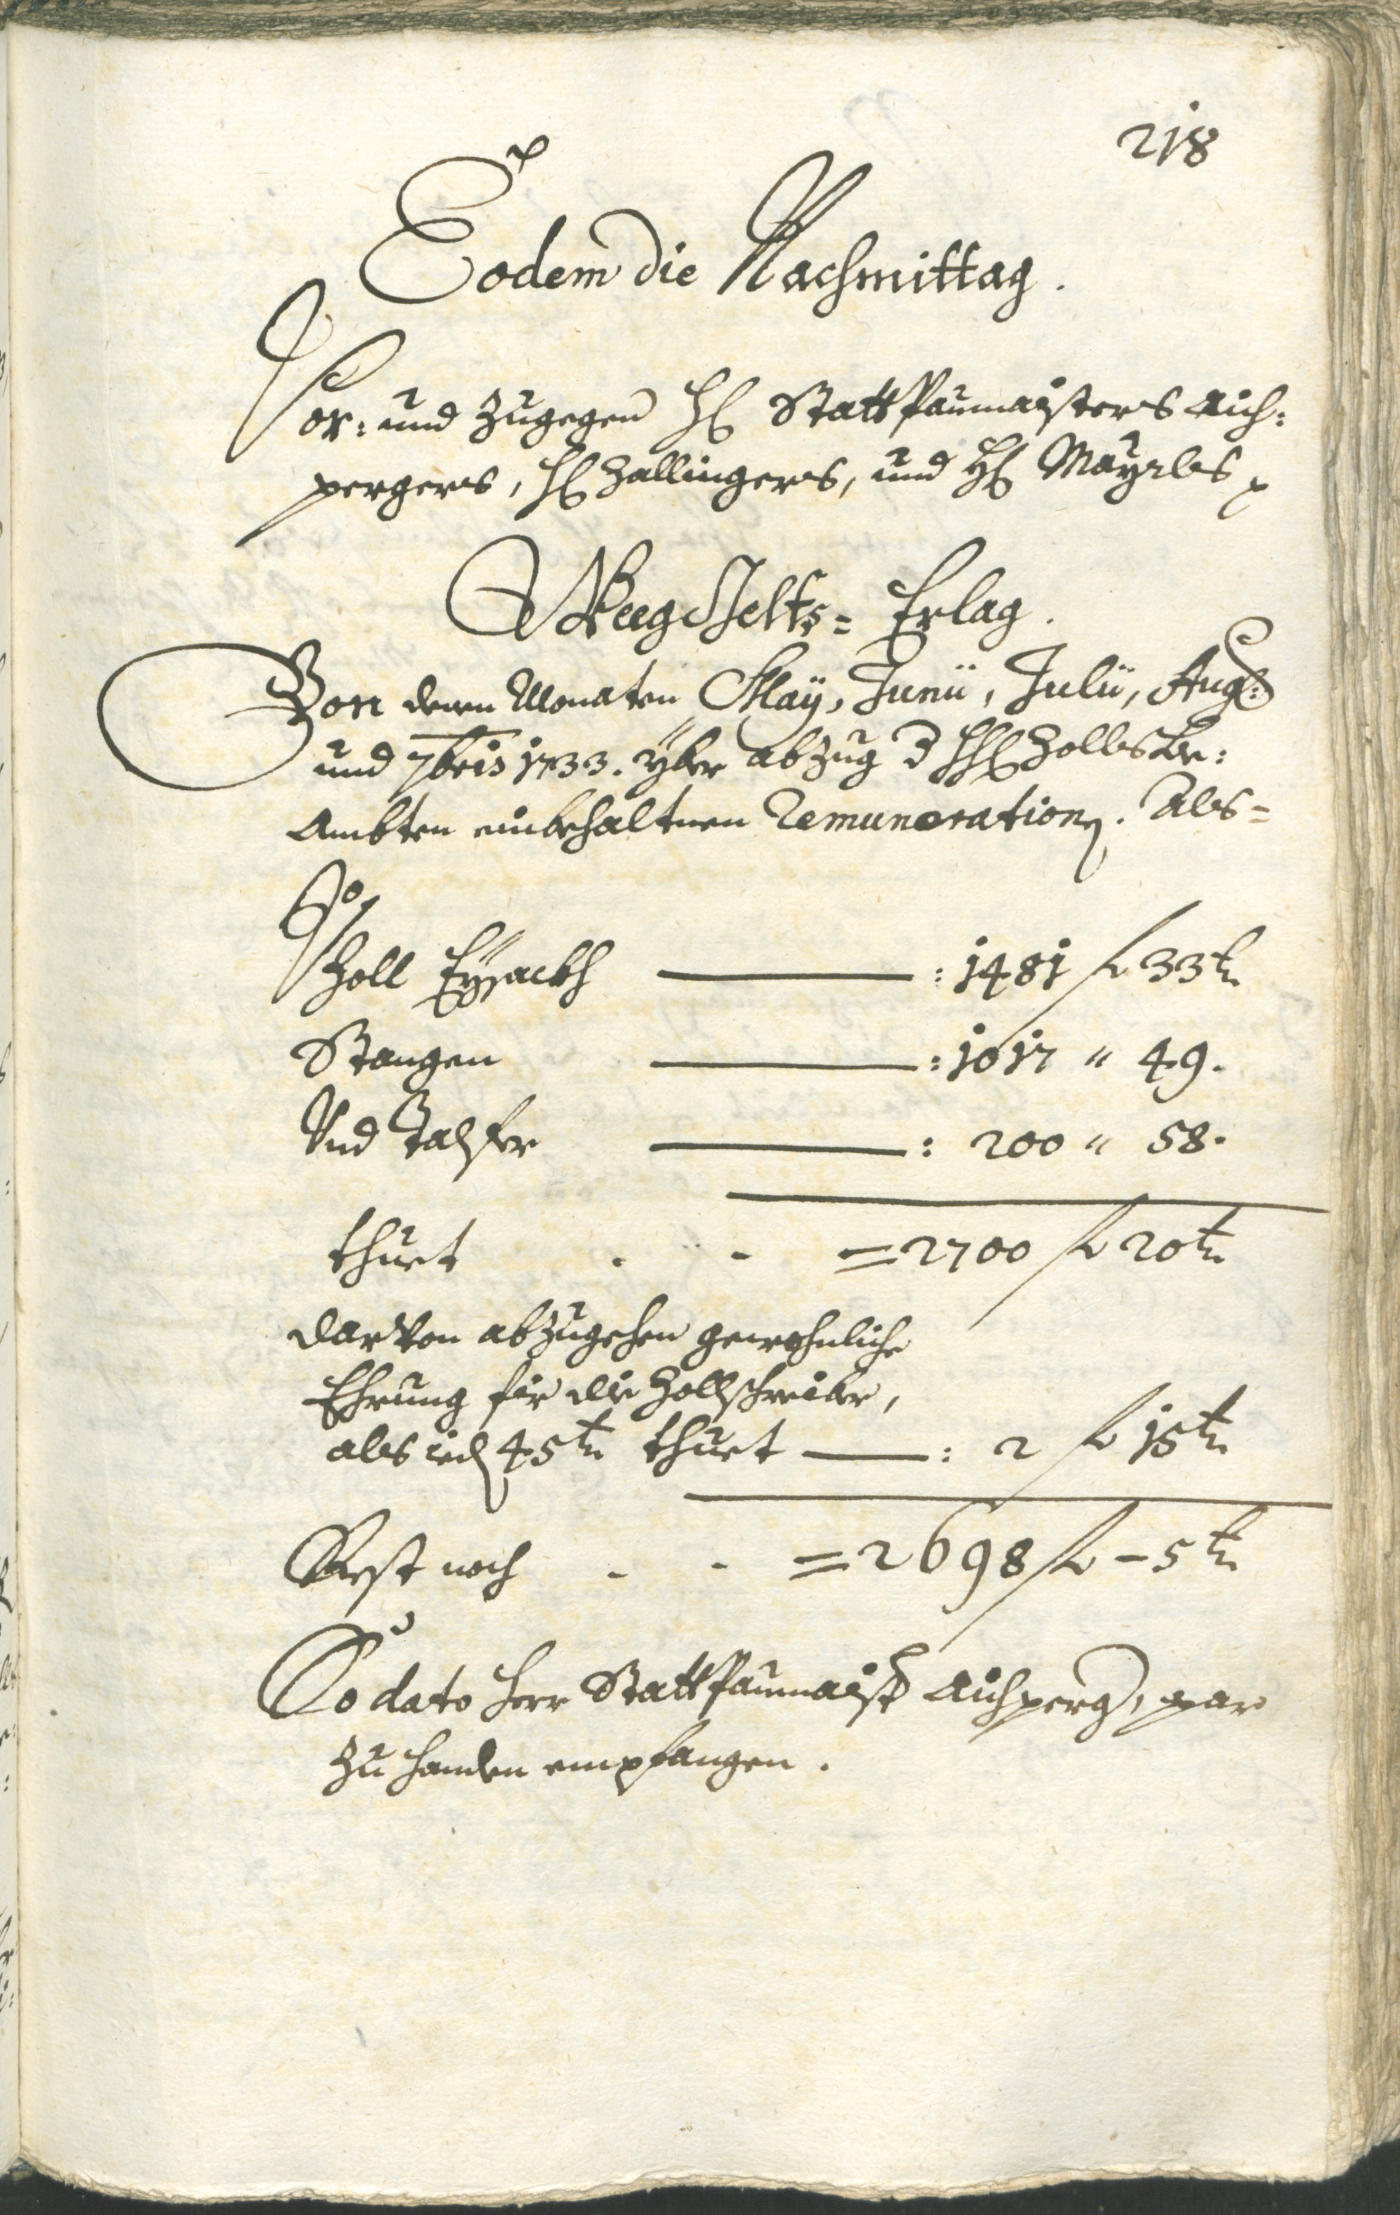 218
Eodem die Nachmittag.
Vor: und zugegen H: Statt Paumaisters Aich:
pergers, H: Zallingers, und H: Mayrls p
Weeg Gelts= Erlag.
Von denen Monaten May, Junii, Julii, Aug:
und 7bris 1733. yber abzug d HH: Zolls Be:
Ambten einbehaltnen Remuneration. Als=
Zoll Eysackh ——— : 1481 f 33 kr
Stangen ——— : 1017 " 49.
Und Talfer ——— : 200 " 58.
thuet - - = 2700 f 20 kr
darvon abzugehen gewohnliche
Ehrung fir die Zollschreiber,
als ied 45 kr thuet ——— : 2 f 15 kr
Rest noch - - = 2698 f – 5 kr
So dato Herr Statt Paumaist Aichperg, par
zu handen empfangen.